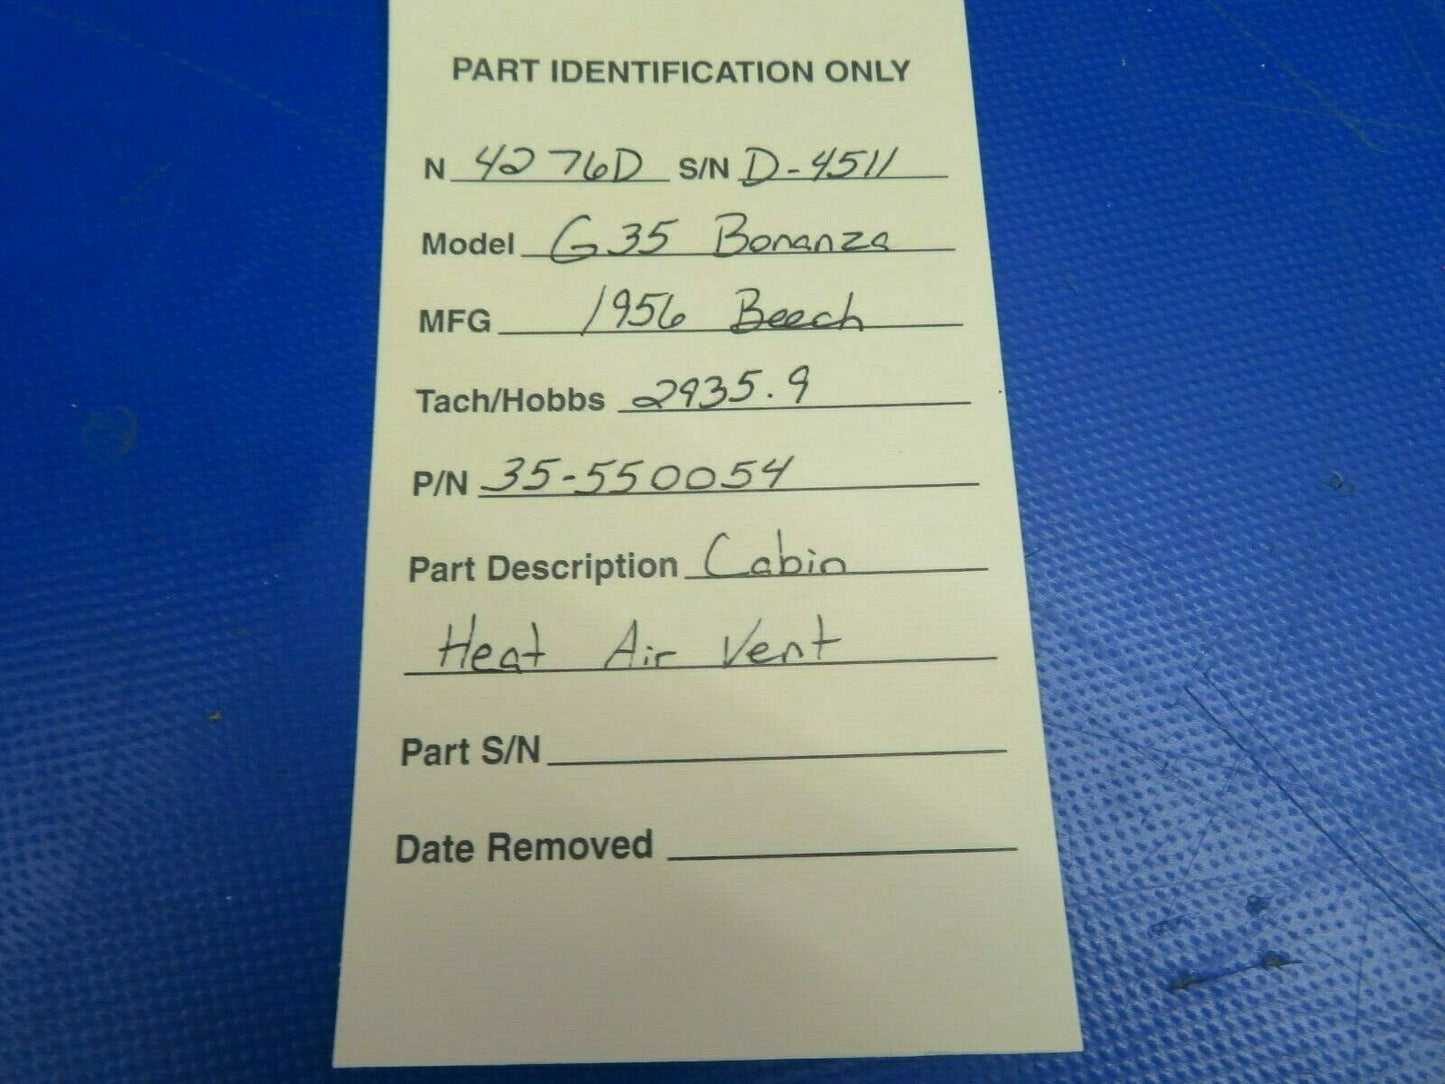 PART IDENTIFICATION ONLY
N 4276D S/N D-4511
Model G35 Bonanza
MFG 1956 Beech
Tach/Hobbs 2935.9
P/N 35-550054
Part Description Cabin
Heat Air Vent
Part S/N
Date Removed